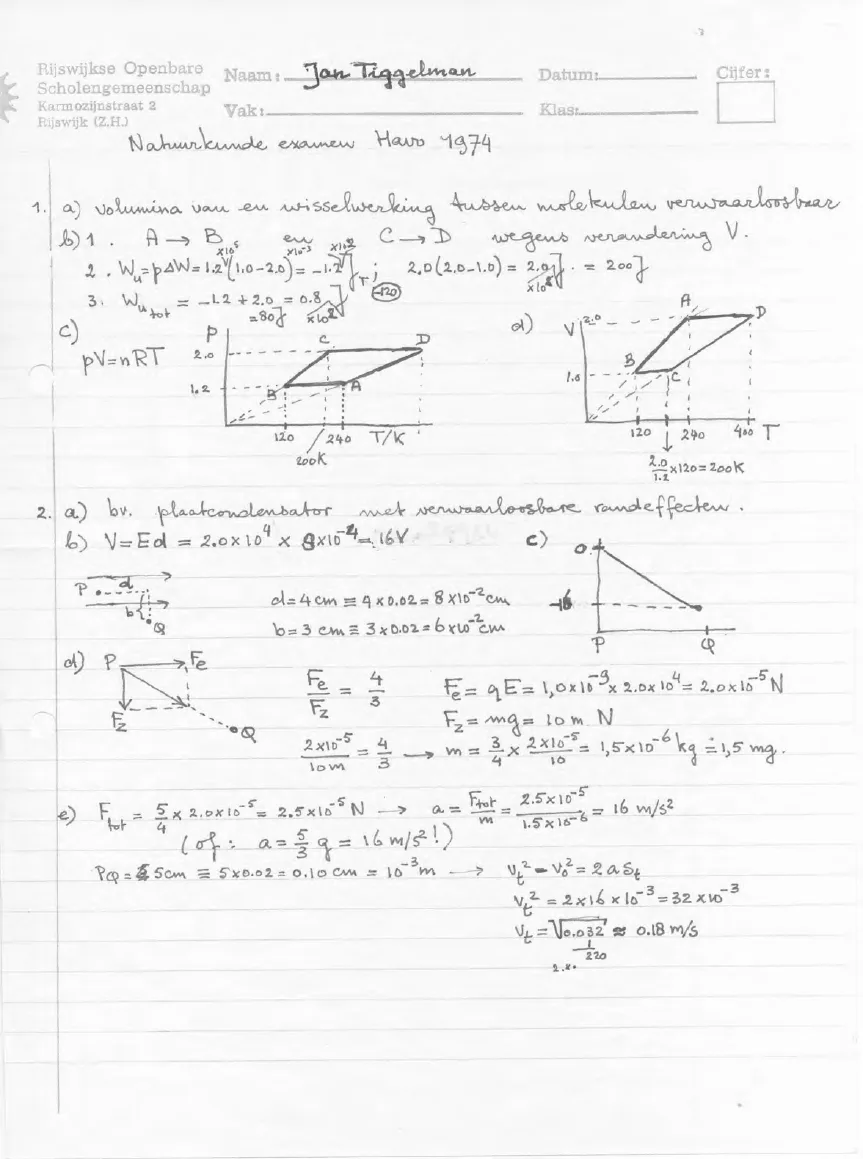 Rijswijkse Openbare
Scholengemeenschap
Karmozijnstraat 2
Rijswijk (Z.H.)
Naam: Jan Tiggelman
Datum:
Cijfer:
Vak:
Klas:
Natuurkunde examen Havo 1974
1. a) Volumina van en wisselwerking tussen molekulen verwaarloosbaar
b) 1. A → B en C → D wegens verandering V.
2. Wu = pΔW = 1.2 ×10⁵ (1.0-2.0) ×10⁻³ = -1.2 ×10² J; 2.0(2.0-1.0) = 2.0 ×10² J. = 200 J
-120
3. Wu tot = -1.2 + 2.0 = 0.8 ×10² J
= 80 J
c) pV = nRT
P
2.0
1.2
C D
B A
120 240 T/K
200K
d) V
2.0
1.0
A D
B C
120 240 400 T
2.0/1.2 × 120 = 200K
2. a) bv. plaatcondensator met verwaarloosbare randeffecten.
b) V = Ed = 2.0×10⁴ × 8×10⁻⁴ = 16V
c) 0
-16
P Q
P d
b
Q
d = 4 cm ≡ 4 × 0.02 = 8×10⁻² cm
b = 3 cm ≡ 3 × 0.02 = 6×10⁻² cm
d) P Fe
Fz
Q
Fe/Fz = 4/3
Fe = qE = 1,0×10⁻⁹ × 2.0×10⁴ = 2.0×10⁻⁵ N
Fz = mg = 10 m N
2×10⁻⁵/10m = 4/3 → m = 3/4 × 2×10⁻⁵/10 = 1,5×10⁻⁶ kg = 1,5 mg.
e) Ftot = 5/4 × 2.0×10⁻⁵ = 2.5×10⁻⁵ N → a = Ftot/m = 2.5×10⁻⁵/1.5×10⁻⁶ = 16 m/s²
(of: a = 5/3 g = 16 m/s²!)
PQ = 5cm ≡ 5×0.02 = 0.10 cm = 10⁻³ m → Vt² - V0² = 2a St
Vt² = 2×16×10⁻³ = 32×10⁻³
Vt = √0.032 ≈ 0.18 m/s
1
220
2.x.